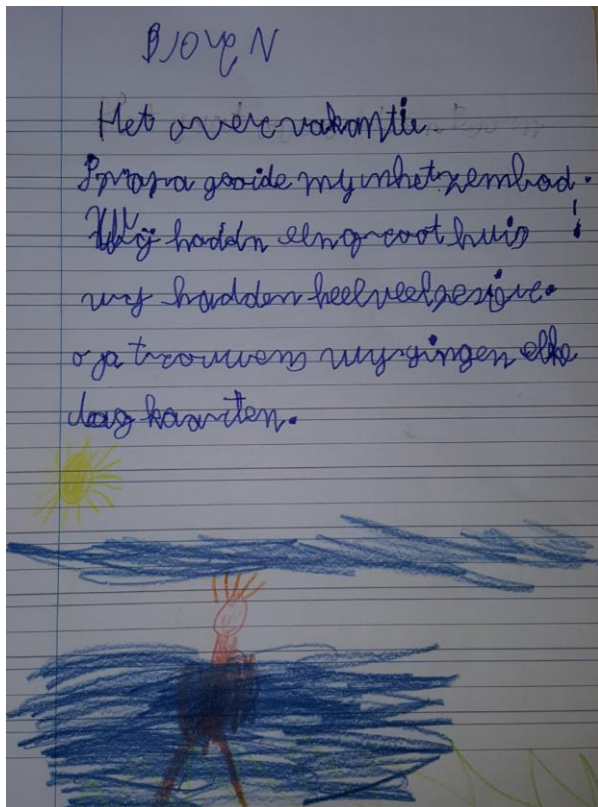 BJOYN
Het over vakantie.
Papa gooide myinhetzembad.
Wij haddn eengroot huis!
wy hadden heelveel
oja trouwens wy gingen elke
dag kaarten.